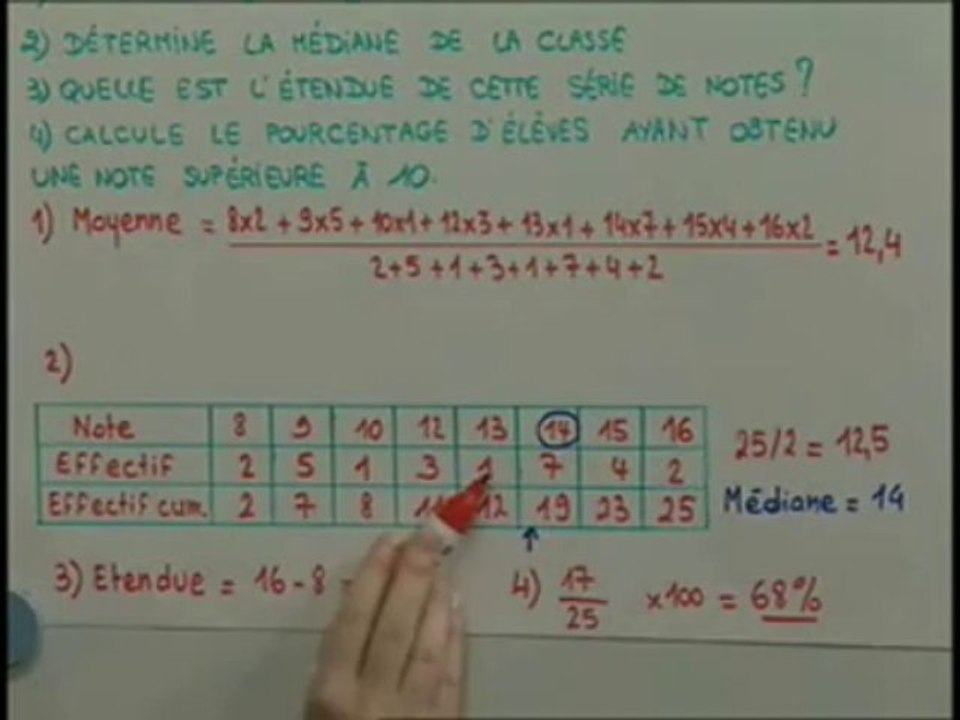 2) DÉTERMINE LA MÉDIANE DE LA CLASSE
3) QUELLE EST L'ÉTENDUE DE CETTE SÉRIE DE NOTES ?
4) CALCULE LE POURCENTAGE D'ÉLÈVES AYANT OBTENU
UNE NOTE SUPÉRIEURE À 10.
1) Moyenne = 8x2 + 9x5 + 10x1 + 12x3 + 13x1 + 14x7 + 15x4 + 16x2 = 12,4
2+5+1+3+1+7+4+2
2)
Note 8 9 10 12 13 14 15 16
Effectif 2 5 1 3 1 7 4 2
Effectif cum. 2 7 8 12 19 23 25
25/2 = 12,5
Médiane = 14
3) Etendue = 16 - 8
4) 17/25 x100 = 68%